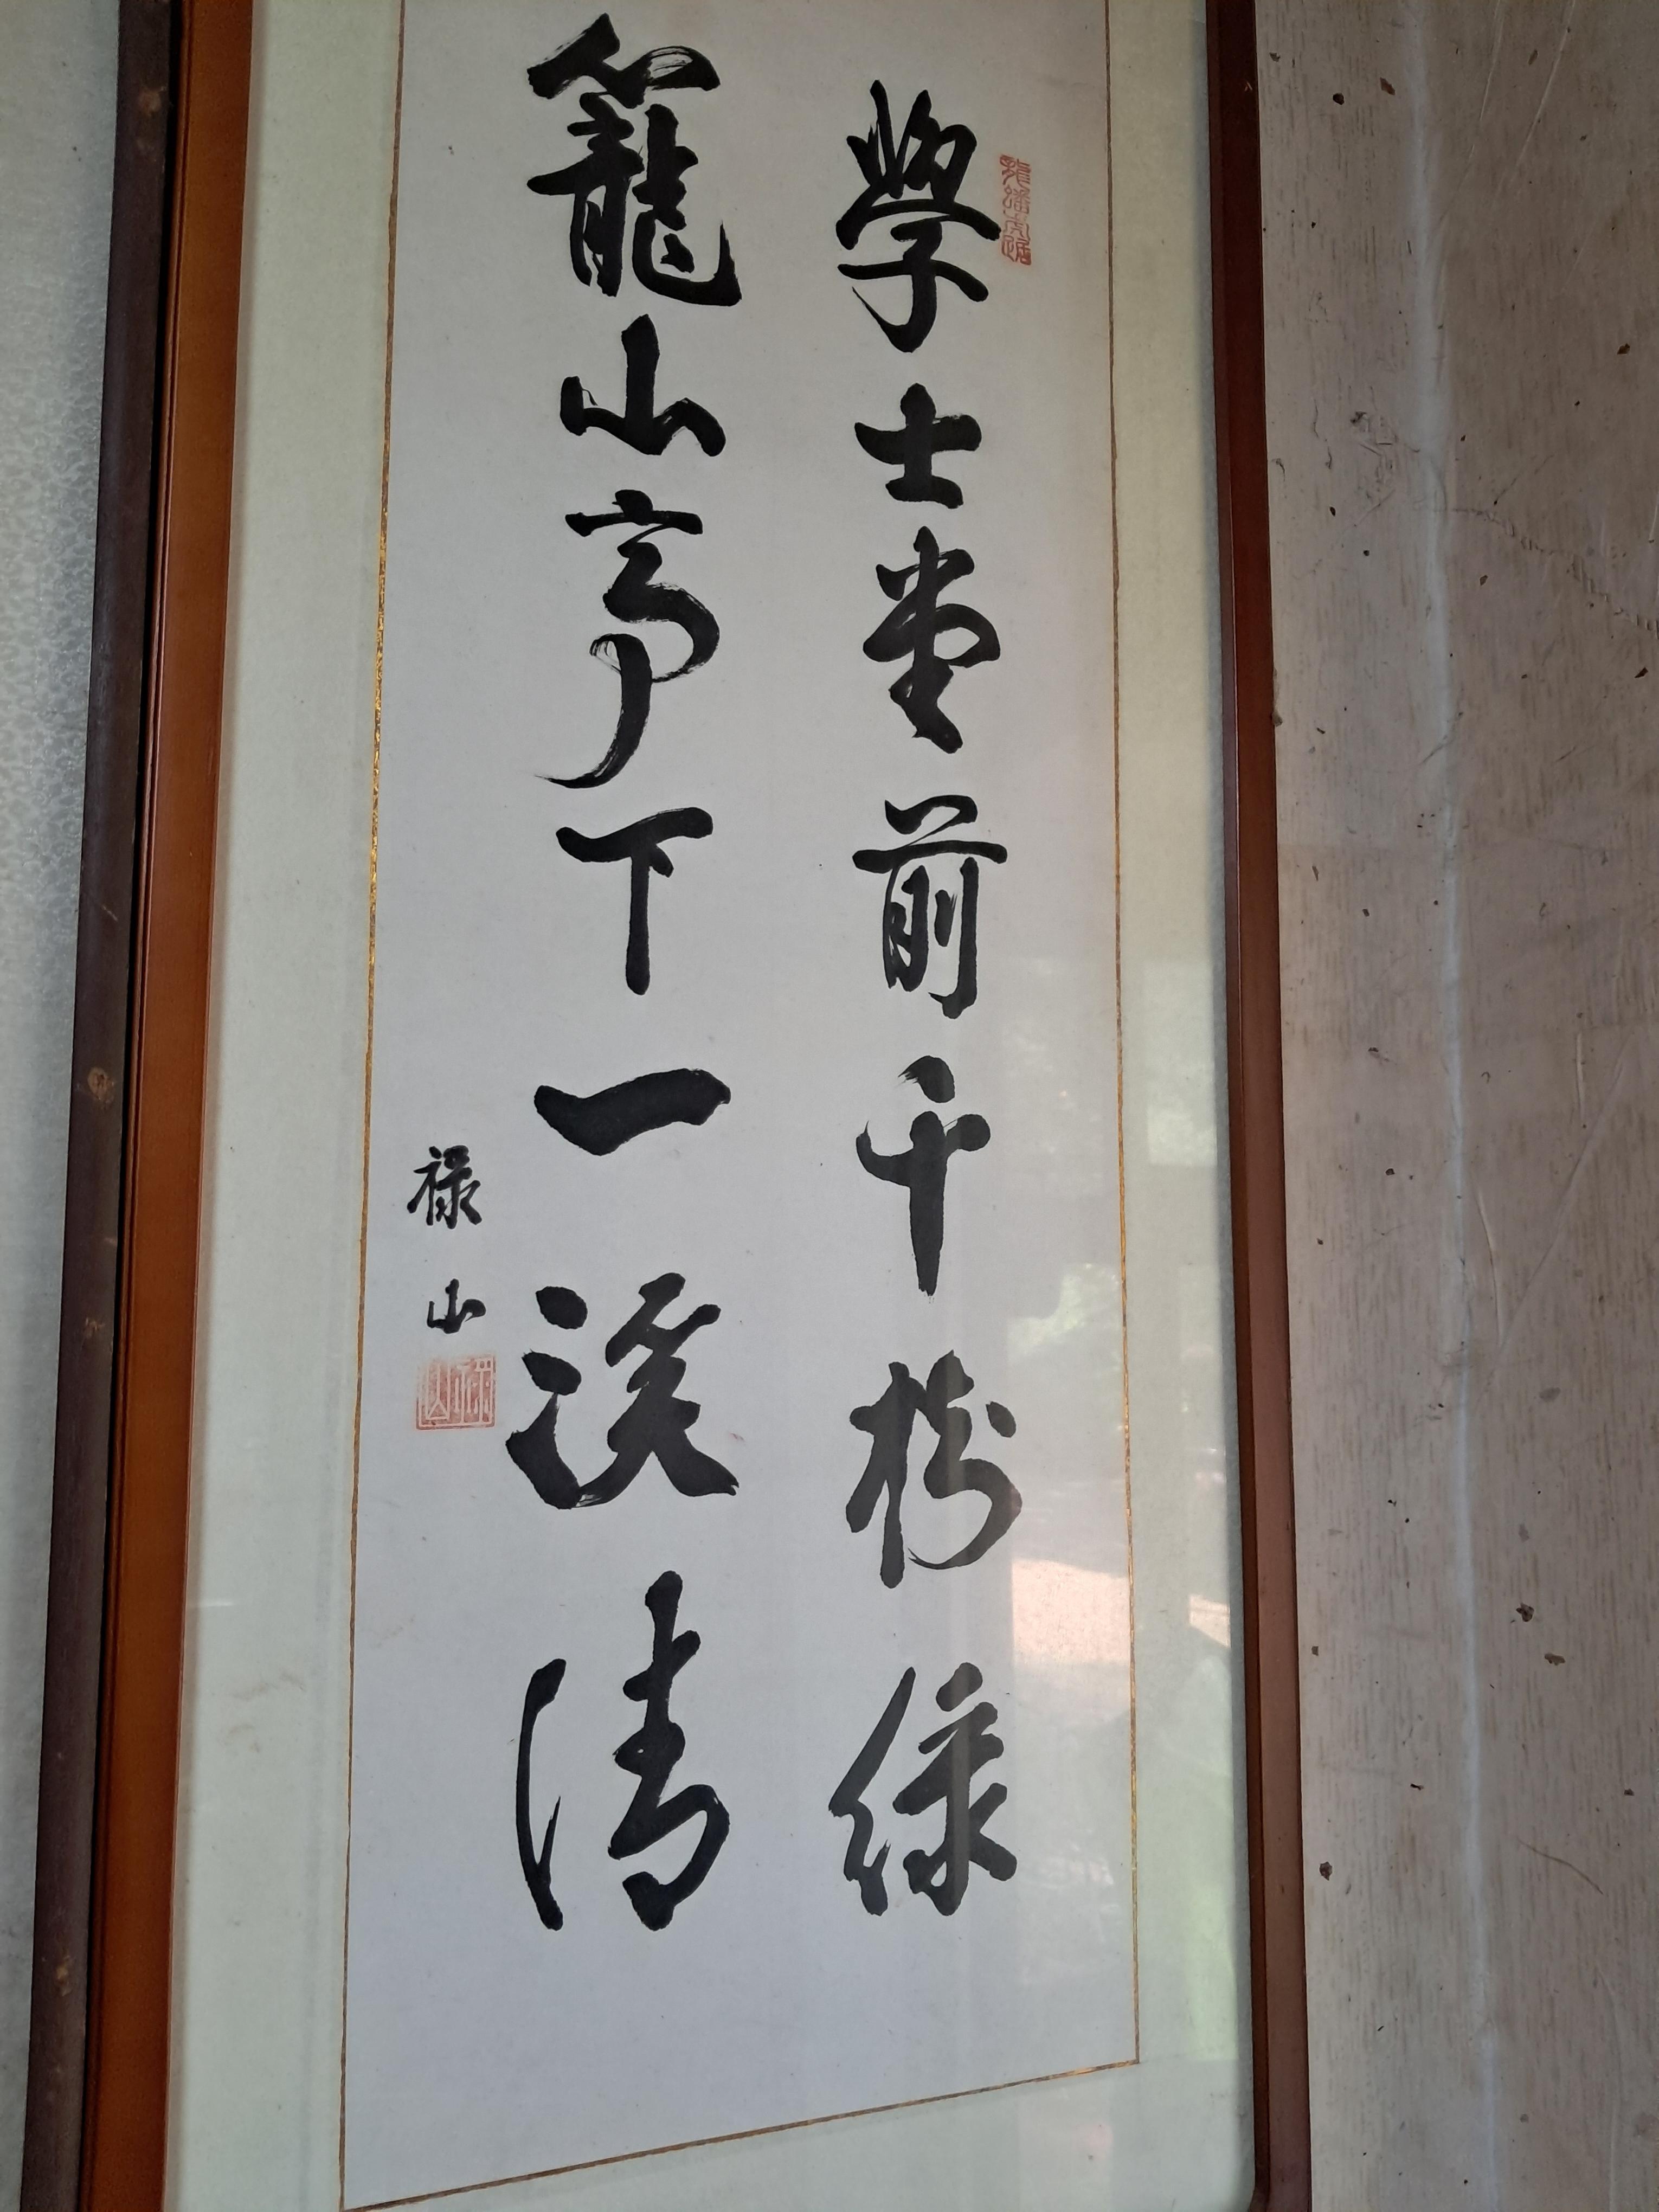 學士堂前千樹綠
籠山亭下一溪清
祿山
龍蟠虎踞